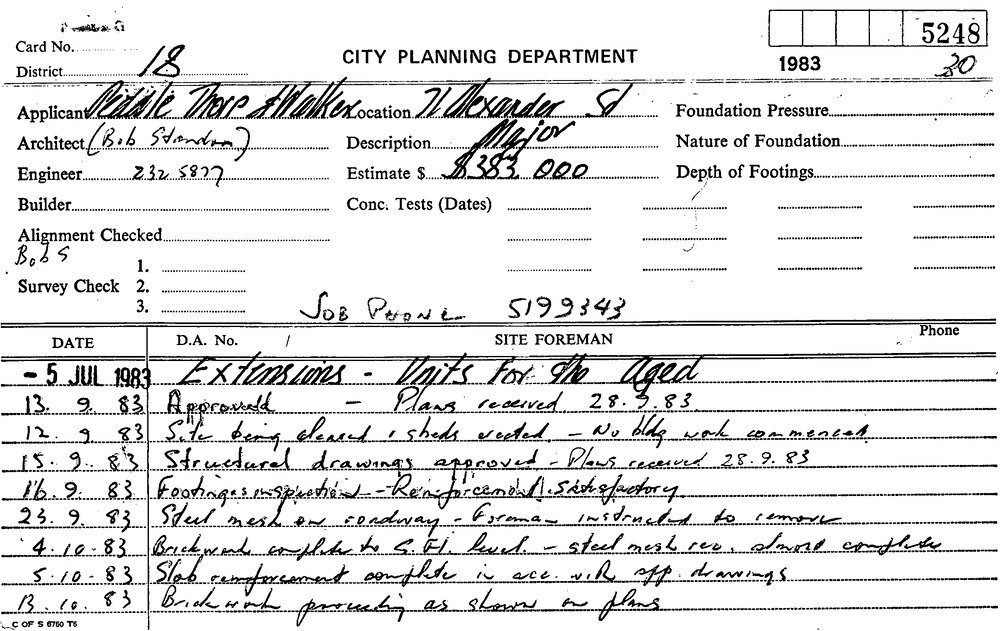 5248
Card No.
CITY PLANNING DEPARTMENT
1983
30
District 18
Applicant Peddle Thorp & Walker Location 71 Alexander St Foundation Pressure
Architect (Bob Standon) Description Major Nature of Foundation
Engineer 232 5877 Estimate $ $383 000 Depth of Footings
Builder Conc. Tests (Dates)
Alignment Checked
Bob S
1.
Survey Check 2.
3.
JOB PHONE 5199343
DATE D.A. No. / SITE FOREMAN Phone
- 5 JUL 1983 Extensions - Units For the Aged
13. 9. 83 Approved - Plans received 28.9.83
12. 9. 83 Site being cleared & sheds erected. - No bldg work commenced.
15. 9. 83 Structural drawings approved - Plans received 28.9.83
16. 9. 83 Footings inspection - Reinforcement satisfactory
23. 9. 83 Steel mesh on roadway - Foreman instructed to remove
4. 10. 83 Brickwork complete to G.Fl. level. - steel mesh reo. almost complete
5. 10. 83 Slab reinforcement complete in acc. with app. drawings
13. 10. 83 Brickwork proceeding as shown on plans
C OF S 6760 T6